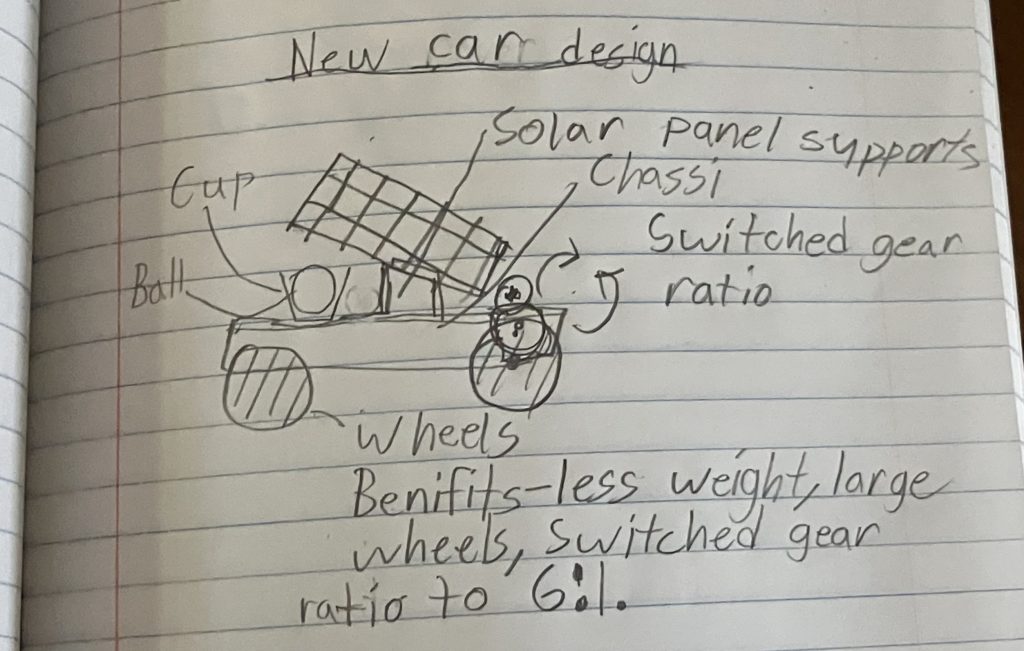 New car design
Solar panel supports
Cup
Chassi
Switched gear
Ball
ratio
Wheels
Benifits-less weight, large
wheels, switched gear
ratio to 6:1.